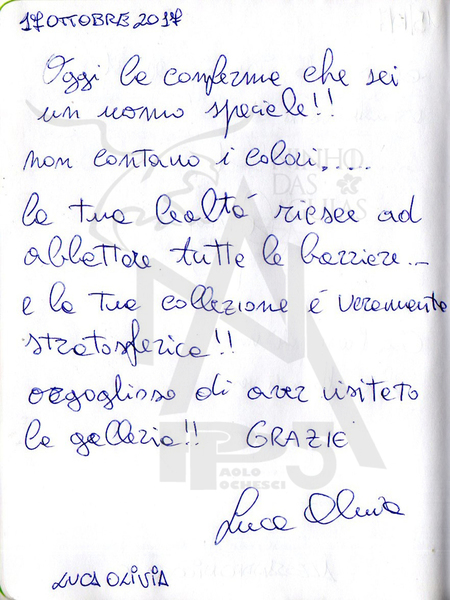 17 OTTOBRE 2017
Oggi la conferma che sei
un uomo speciale!!
non contano i colori,....
la tua lealtà riesce ad
abbattere tutte le barriere...
e la tua collezione é veramente
stratosferica!!
orgoglioso di aver visitato
la galleria!! GRAZIE
AOLO
OCHESCI
Luca Olivia
LUCA OLIVIA